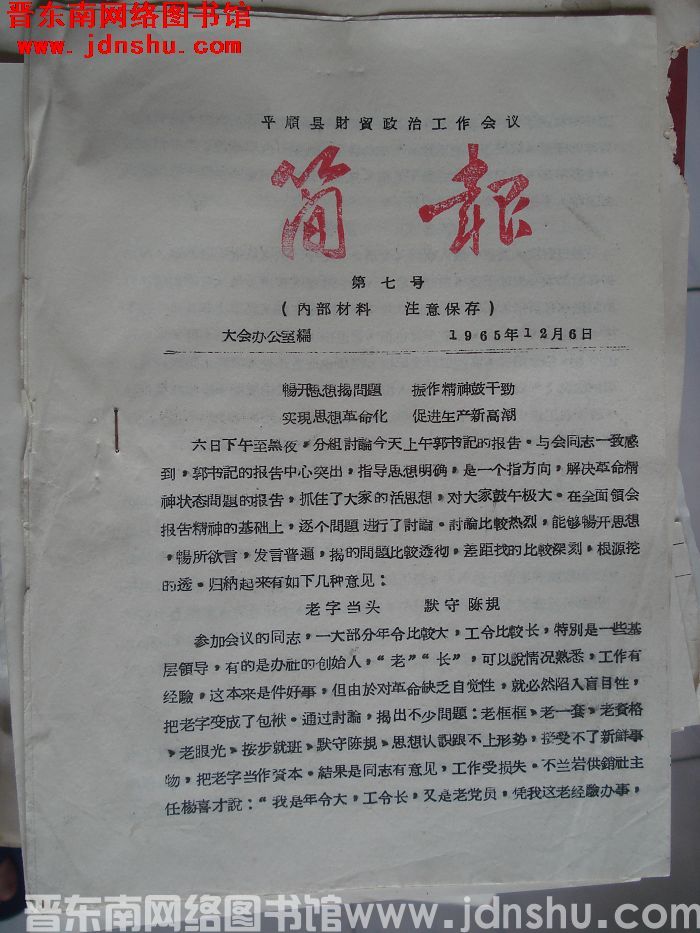 晋东南网络图书馆
www.jdnshu.com
平順县財貿政治工作会议
简报
第七号
（内部材料 注意保存）
大会办公室編 1965年12月6日
暢开思想揭問題 振作精神鼓干勁
实現思想革命化 促进生产新高潮
六日下午至黑夜，分組討論今天上午郭书記的报告。与会同志一致感
到，郭书記的报告中心突出，指导思想明确，是一个指方向，解决革命精
神状态問題的报告，抓住了大家的活思想，对大家鼓午极大。在全面領会
报告精神的基础上，逐个問題进行了討論。討論比較热烈，能够暢开思想
，暢所欲言，发言普遍，揭的問題比較透彻，差距找的比較深刻，根源挖
的透。归納起来有如下几种意见：
老字当头 默守陈規
参加会议的同志，一大部分年令比較大，工令比較长，特別是一些基
层領导，有的是办社的创始人，“老”“长”，可以說情况熟悉，工作有
经驗，这本来是件好事，但由於对革命缺乏自觉性，就必然陷入盲目性，
把老字变成了包袱。通过討論，揭出不少問題：老框框、老一套、老資格
、老眼光、按步就班、默守陈規、思想认識跟不上形势，接受不了新鮮事
物，把老字当作資本。結果是同志有意见，工作受损失。不兰岩供銷社主
任楊喜才說：“我是年令大，工令长，又是老党员，凭我这老经驗办事，
晋东南网络图书馆 www.jdnshu.com